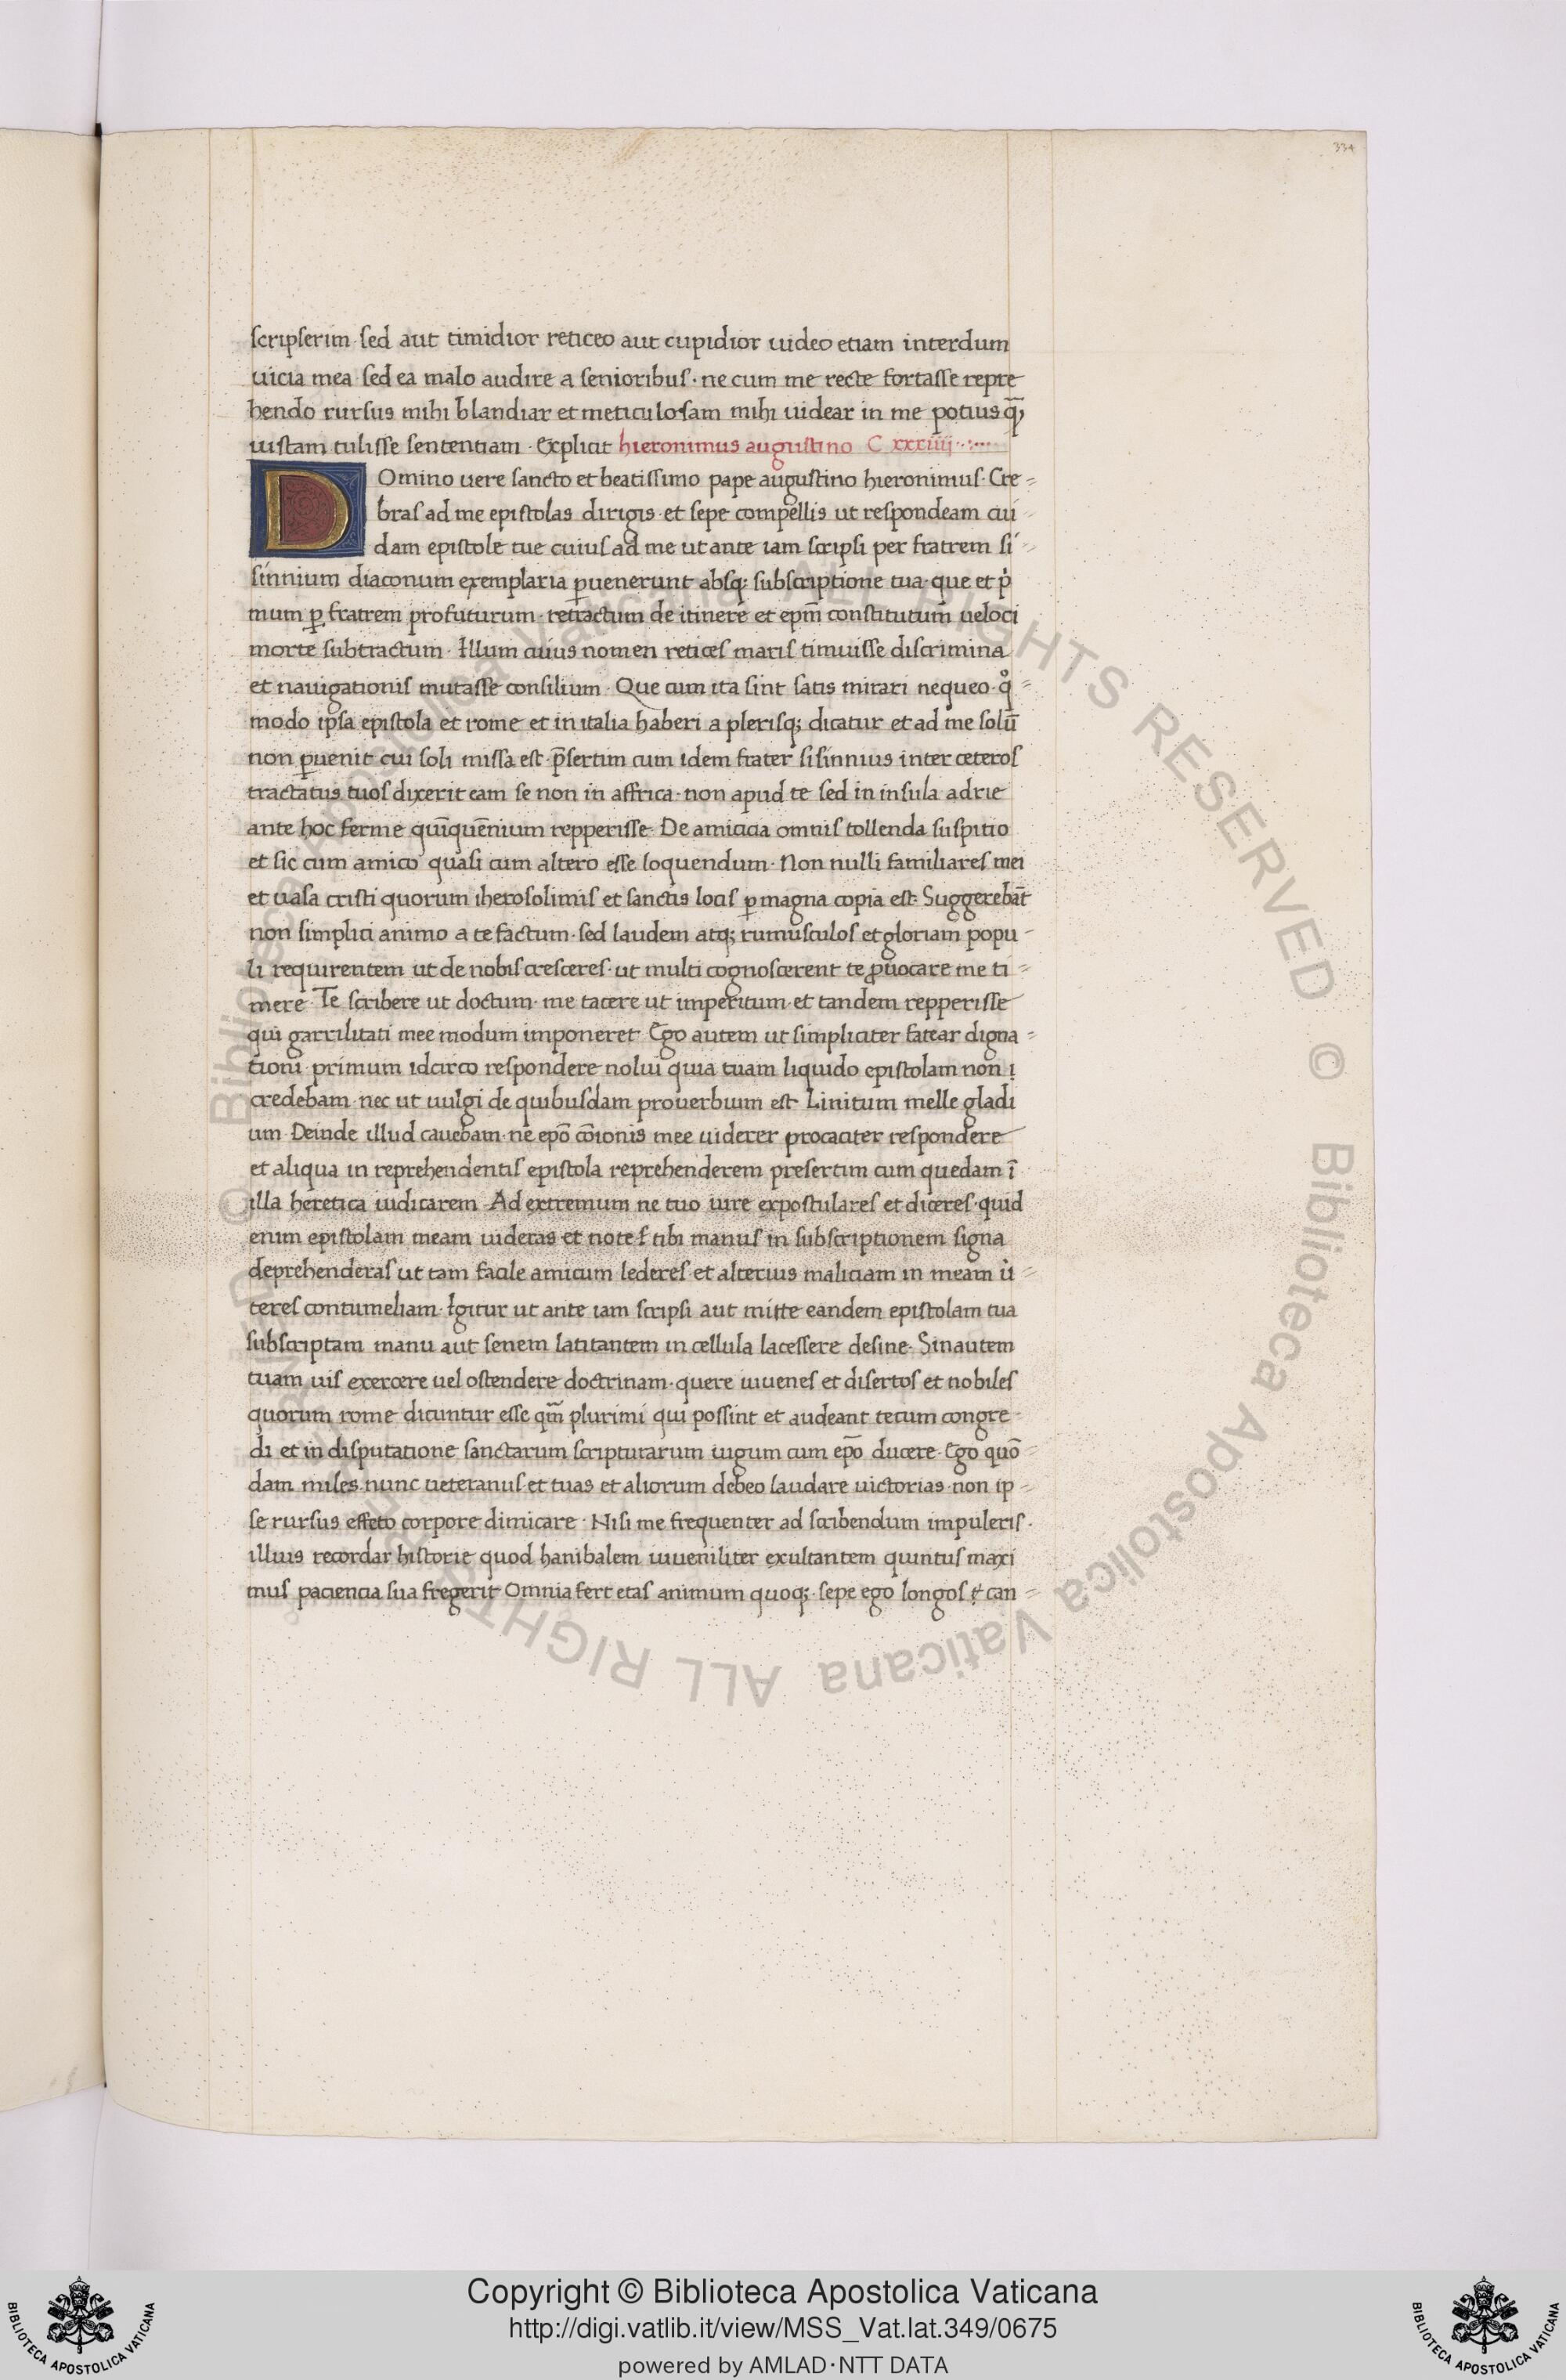 334
scripserim · sed aut timidior reticeo aut cupidior uideo etiam interdum
uicia mea · sed ea malo audire a senioribus · ne cum me recte fortasse repre
hendo rursus mihi blandiar et meticulosam mihi uidear in me potius q̃ꝫ
iustam tulisse sententiam · Explicit hieronimus augustino C xxxiiij · : · ····
DOmino uere sancto et beatissimo pape augustino hieronimus · Cre=
bras ad me epistolas dirigis · et sepe compellis ut respondeam cui=
dam epistole tue cuius ad me ut ante iam scripsi per fratrem si=
sinnium diaconum exemplaria ꝑuenerunt absqꝫ subscriptione tua · que et p̍
mum ꝑ fratrem profuturum · retractum de itinere et ep̄m constitutum ueloci
morte subtractum · Illum cuius nomen retices maris timuisse discrimina
et nauigationis mutasse consilium · Que cum ita sint satis mirari nequeo · qͦ=
modo ipsa epistola et rome et in italia haberi a plerisqꝫ dicatur et ad me solū
non ꝑuenit cui soli missa est · p̄sertim cum idem frater sisinnius inter ceteros
tractatus tuos dixerit eam se non in affrica · non apud te sed in insula adrie
ante hoc ferme quīquēnium repperisse · De amicicia omnis tollenda suspitio
et sic cum amico quasi cum altero esse loquendum · Non nulli familiares mei
et uasa cristi quorum iherosolimis et sanctis locis ꝑmagna copia est · Suggerebāt
non simplici animo a te factum · sed laudem atqꝫ rumusculos et gloriam popu-
li requirentem ut de nobis cresceres · ut multi cognoscerent te ꝓuocare me ti=
mere · Te scribere ut doctum · me tacere ut imperitum · et tandem repperisse
qui garrilitati mee modum imponeret · Ego autem ut simpliciter fatear digna=
tioni · primum idcirco respondere nolui quia tuam liquido epistolam non ı
credebam · nec ut uulgi de quibusdam prouerbium est · Linitum melle gladi
um · Deinde illud cauebam · ne ep̄o cōionis mee uiderer procaciter respondere
et aliqua in reprehendentis epistola reprehenderem presertim cum quedam ī
illa heretica iudicarem · Ad extremum ne tuo iure expostulares et diceres · quid
enim epistolam meam uideras et notes tibi manus in subscriptionem signa
deprehenderas ut tam facile amicum lederes · et alterius maliciam in meam u̍=
teres contumeliam · Igitur ut ante iam scripsi aut mitte eandem epistolam tua
subscriptam manu aut senem latitantem in cellula lacessere desine · Sin autem
tuam uis exercere uel ostendere doctrinam · quere iuuenes et disertos et nobiles
quorum rome dicuntur esse qm̄ plurimi qui possint et audeant tecum congre-
di et in disputatione sanctarum scripturarum iugum cum ep̄o ducere · Ego quō=
dam miles · nunc ueteranus et tuas et aliorum debeo laudare uictorias · non ip=
se rursus effeto corpore dimicare · Nisi me frequenter ad scribendum impuleris ·
illius recordar historie quod hanibalem iuueniliter exultantem quintus maxi
mus paciencia sua fregerit · Omnia fert etas animum quoqꝫ · sepe ego longos et can=
© Biblioteca Apostolica Vaticana ALL RIGHTS RESERVED © Biblioteca Apostolica Vaticana ALL RIGHTS RESERVED
BIBLIOTECA APOSTOLICA VATICANA
Copyright © Biblioteca Apostolica Vaticana
http://digi.vatlib.it/view/MSS_Vat.lat.349/0675
powered by AMLAD·NTT DATA
BIBLIOTECA APOSTOLICA VATICANA